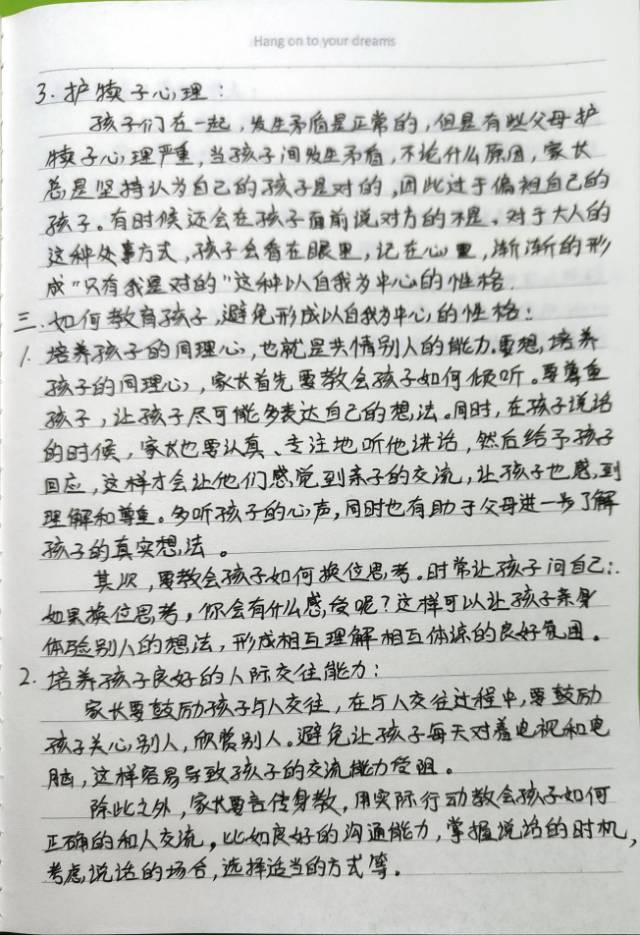 Hang on to your dreams
3. 护犊子心理:
孩子们在一起,发生矛盾是正常的,但是有些父母护
犊子心理严重,当孩子间发生矛盾,不论什么原因,家长
总是坚持认为自己的孩子是对的,因此过于偏袒自己的
孩子。有时候还会在孩子面前说对方的不是。对于大人的
这种处事方式,孩子会看在眼里,记在心里,渐渐的形
成"只有我是对的"这种以自我为中心的性格.
三.如何教育孩子,避免形成以自我为中心的性格:
1. 培养孩子的同理心,也就是共情别人的能力.要想,培养
孩子的同理心,家长首先要教会孩子如何倾听。要尊重
孩子,让孩子尽可能多表达自己的想法。同时,在孩子说话
的时候,家长也要认真、专注地听他讲话,然后给予孩子
回应,这样才会让他们感觉到亲子的交流,让孩子也感到
理解和尊重。多听孩子的心声,同时也有助于父母进一步了解
孩子的真实想法。
其次,要教会孩子如何换位思考。时常让孩子问自己:
如果换位思考,你会有什么感受呢?这样可以让孩子亲身
体验别人的想法,形成相互理解相互体谅的良好氛围。
2. 培养孩子良好的人际交往能力:
家长要鼓励孩子与人交往,在与人交往过程中,要鼓励
孩子关心别人,欣赏别人。避免让孩子每天对着电视和电
脑,这样容易导致孩子的交流能力受阻。
除此之外,家长要言传身教,用实际行动教会孩子如何
正确的和人交流,比如良好的沟通能力,掌握说话的时机,
考虑说话的场合,选择适当的方式等。